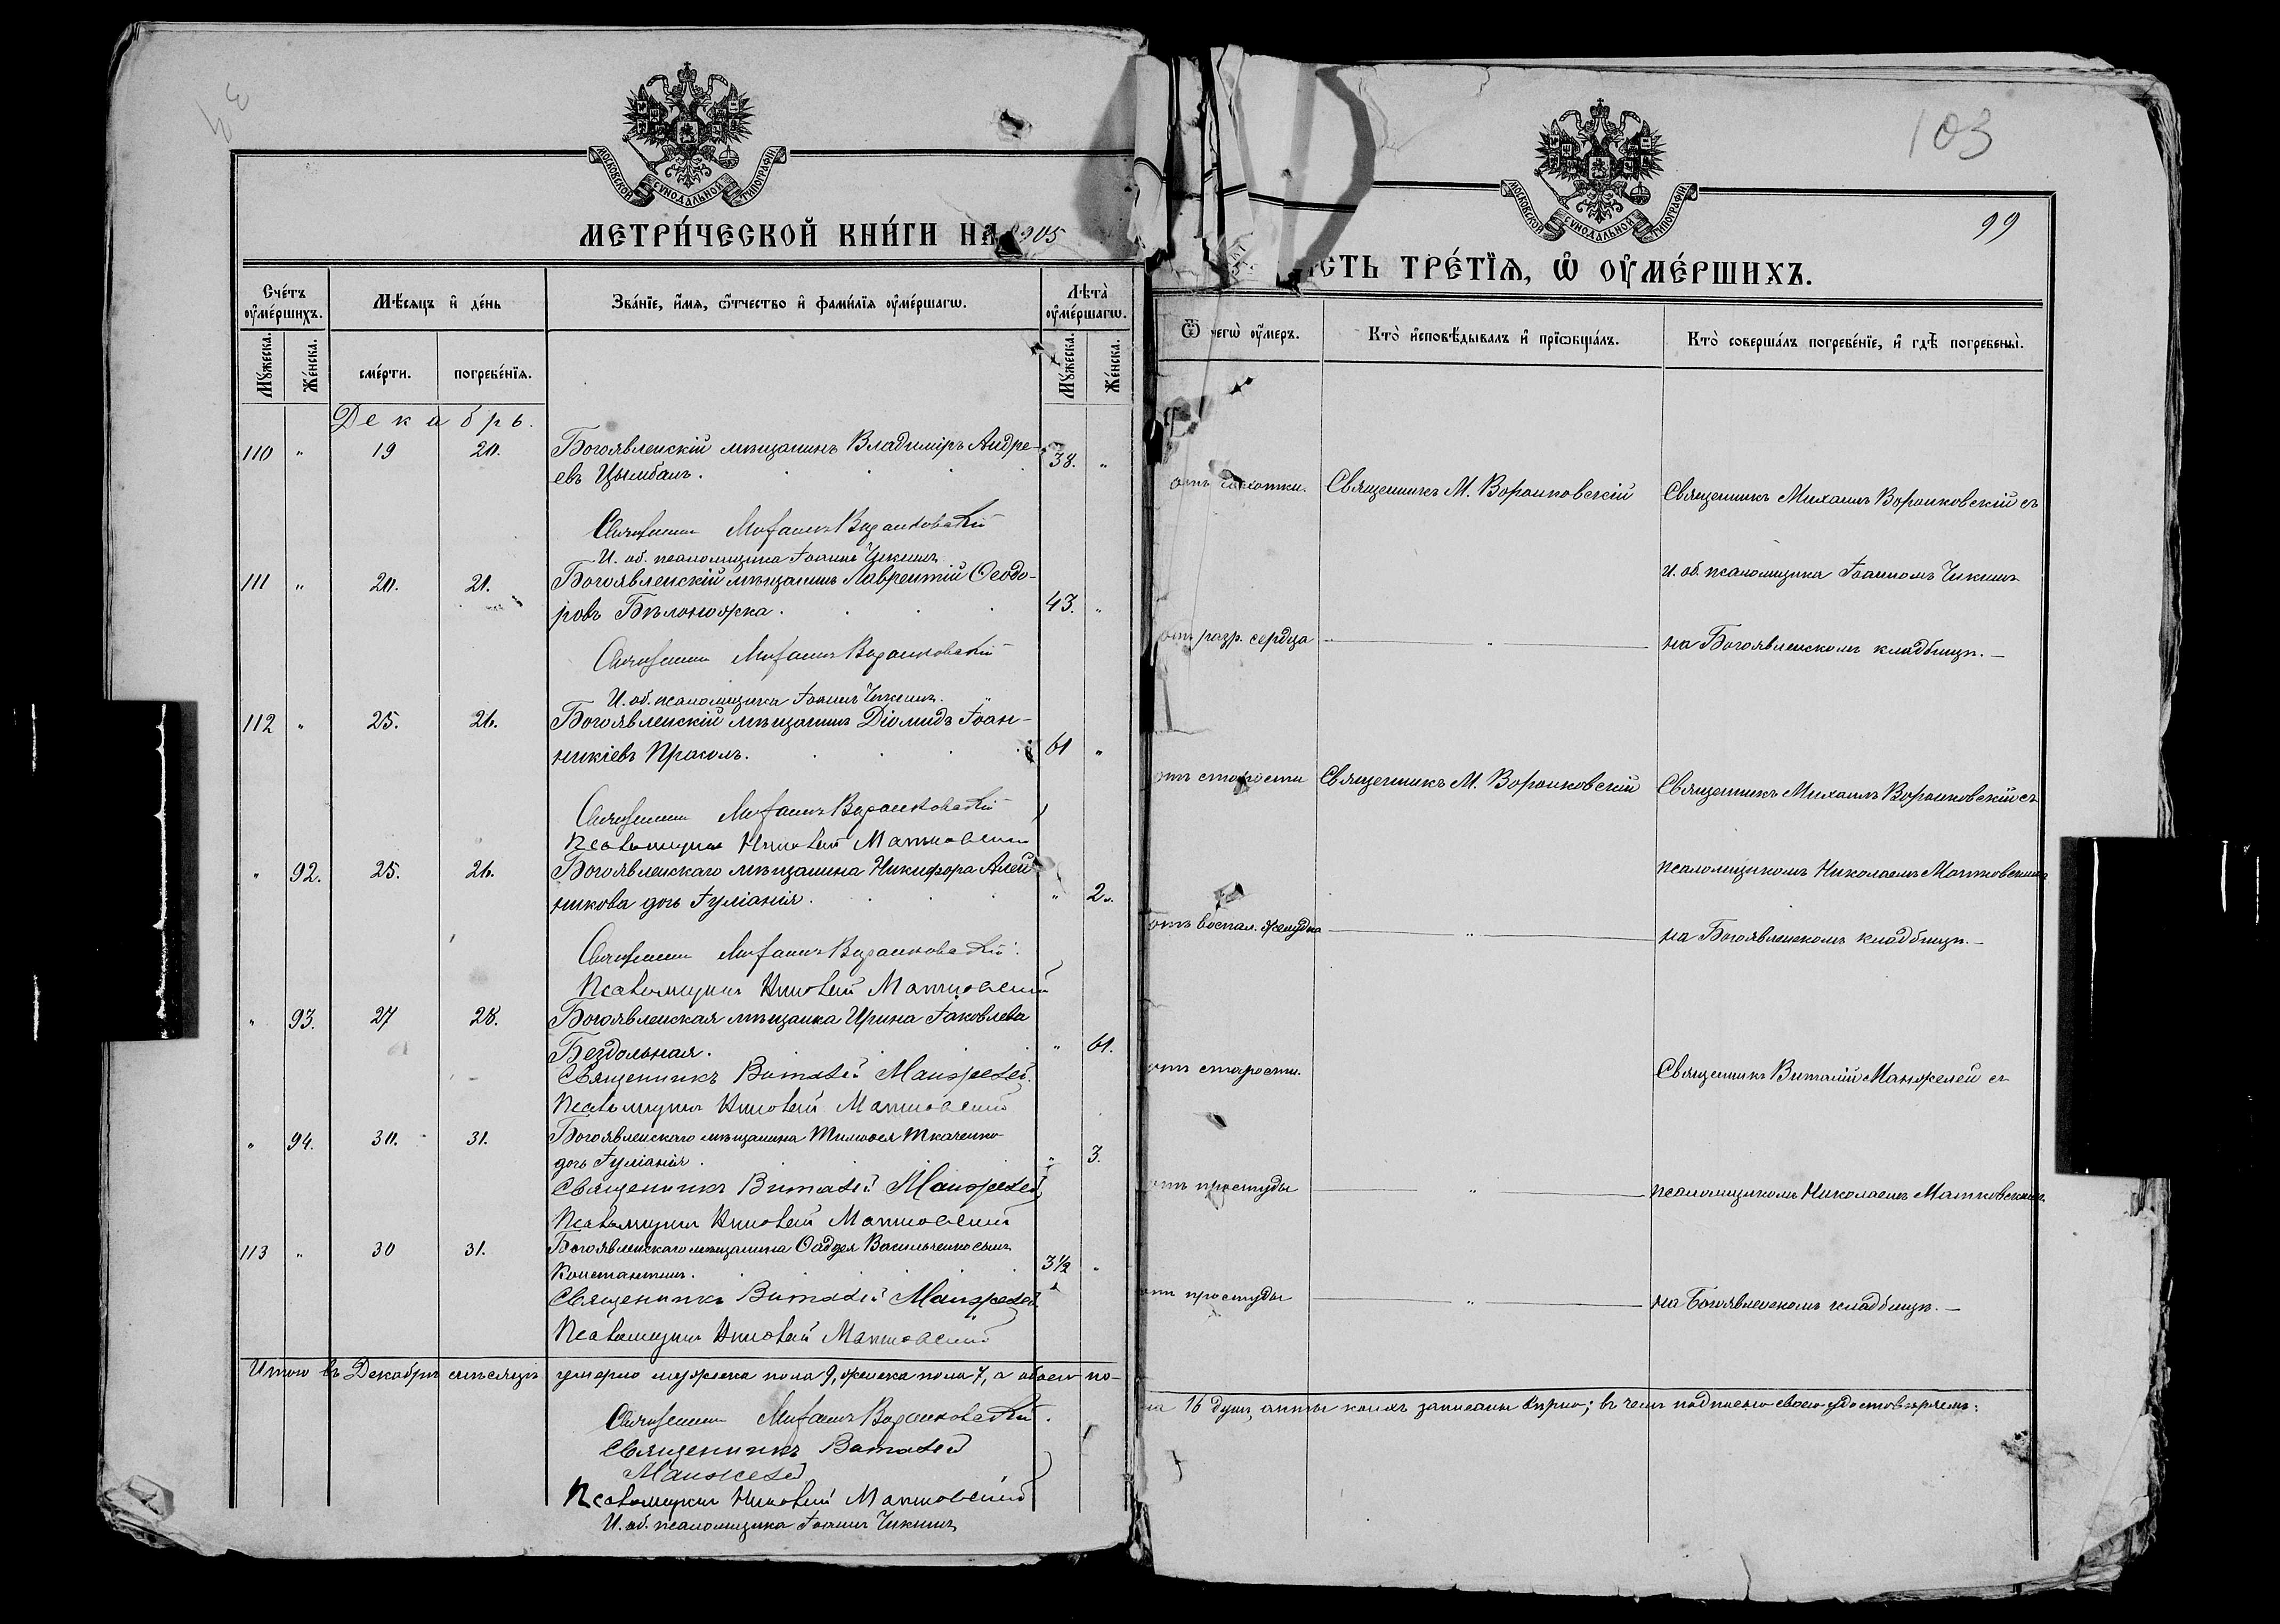 МОСКОВСКОЙ СѴНОДАЛЬНОЙ ТИПОГРАФІИ
МЕТРИ́ЧЕСКОЙ КНИ́ГИ НА 1905
Сче́тъ оу҆ме́ршихъ.
Мѣ́сяцъ и҆ де́нь
Зва́нїе, и҆́мя, ѻ҆́тчество и҆ фами́лїя оу҆ме́ршагѡ.
Лѣ́та оу҆ме́ршагѡ.
Му́жеска.
Же́нска.
сме́рти.
погребе́нїя.
Му́жеска.
Же́нска.
Декабрь.
110 " 19 20. Богоявленскій мѣщанинъ Владиміръ Андре-
евъ Цымбалъ. 38. "
Священникъ Михаилъ Воронковскій
И. об. псаломщика Іоаннъ Чикинъ
111 " 20. 21. Богоявленскій мѣщанинъ Лаврентій Ѳеодо-
ровъ Бѣлоножка. 43. "
Священникъ Михаилъ Воронковскій
И. об. псаломщика Іоаннъ Чикинъ.
112 " 25. 26. Богоявленскій мѣщанинъ Діомидъ Іоан-
никіевъ 61 "
Священникъ Михаилъ Воронковскій
Псаломщикъ Николай Матковскій
" 92. 25. 26. Богоявленскаго мѣщанина Никифора Алей
никова дочь Іуліанія. "
Священникъ Михаилъ Воронковскій
Псаломщикъ Николай Матковскій
" 93. 27 28. Богоявленская мѣщанка Ирина Іаковлева
Бездольная. " 61.
Священникъ Виталій Манжелей
Псаломщикъ Николай Матковскій
" 94. 30. 31. Богоявленскаго мѣщанина Тимоѳея Ткаченко
дочь Іуліанія. " 3.
Священникъ Виталій Манжелей
Псаломщикъ Николай Матковскій
113 " 30 31. Богоявленскаго мѣщанина Ѳаддея Васильченко сынъ
Константинъ. 3½ "
Священникъ Виталій Манжелей
Псаломщикъ Николай Матковскій
Итого въ Декабрѣ мѣсяцѣ умерло мужеска пола 9, женска пола 7, а обоего по-
Священникъ Михаилъ Воронковскій.
Священникъ Виталій
Манжелей
Псаломщикъ Николай Матковскій
И. об. псаломщика Іоаннъ Чикинъ
103
МОСКОВСКОЙ СѴНОДАЛЬНОЙ ТИПОГРАФІИ
99
СТЬ ТРЕ́ТЇѦ, Ѡ҆ ОУ҆МЕ́РШИХЪ.
Ѿ чегѡ̀ оу҆́меръ.
Кто̀ и҆сповѣ́дывалъ и҆ прїѡбща́лъ.
Кто̀ соверша́лъ погребе́нїе, и҆ гдѣ̀ погребены̀.
отъ чахотки. Священникъ М. Воронковскій Священникъ Михаилъ Воронковскій съ
и. об. псаломщика Іоанномъ Чикинъ
отъ разр. сердца " на Богоявленскомъ кладбищѣ.—
отъ старости Священникъ М. Воронковскій Священникъ Михаилъ Воронковскій съ
псаломщикомъ Николаемъ Матковскимъ
отъ воспал. желудка " на Богоявленскомъ кладбищѣ.—
отъ старости. Священникъ Виталій Манжелей съ
отъ простуды " псаломщикомъ Николаемъ Матковскимъ
отъ простуды " на Богоявленскомъ кладбищѣ.—
ла 16 душъ, акты коихъ записаны вѣрно; въ чемъ подписью своею удостовѣряемъ: